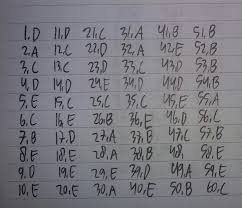 1, D 11, D 21, C 31, A 41, B 51, B
2, A 12, C 22, D 32, A 42, E 52, B
3, C 13, C 23, D 33, C 43, D 53, B
4, D 14, D 24, E 34, D 44, D 54, B
5, E 15, C 25, C 35, C 45, E 55, A
6, C 16, E 26, B 36, E 47, C
7, B 17, D 27, A 37, B 57, B
8, E 18, E 28, A 38, B 48,
9, D 19, E 29, E 39, D 49, A 59, E
10, E 20, E 30, A 40, E 50, B 60, C